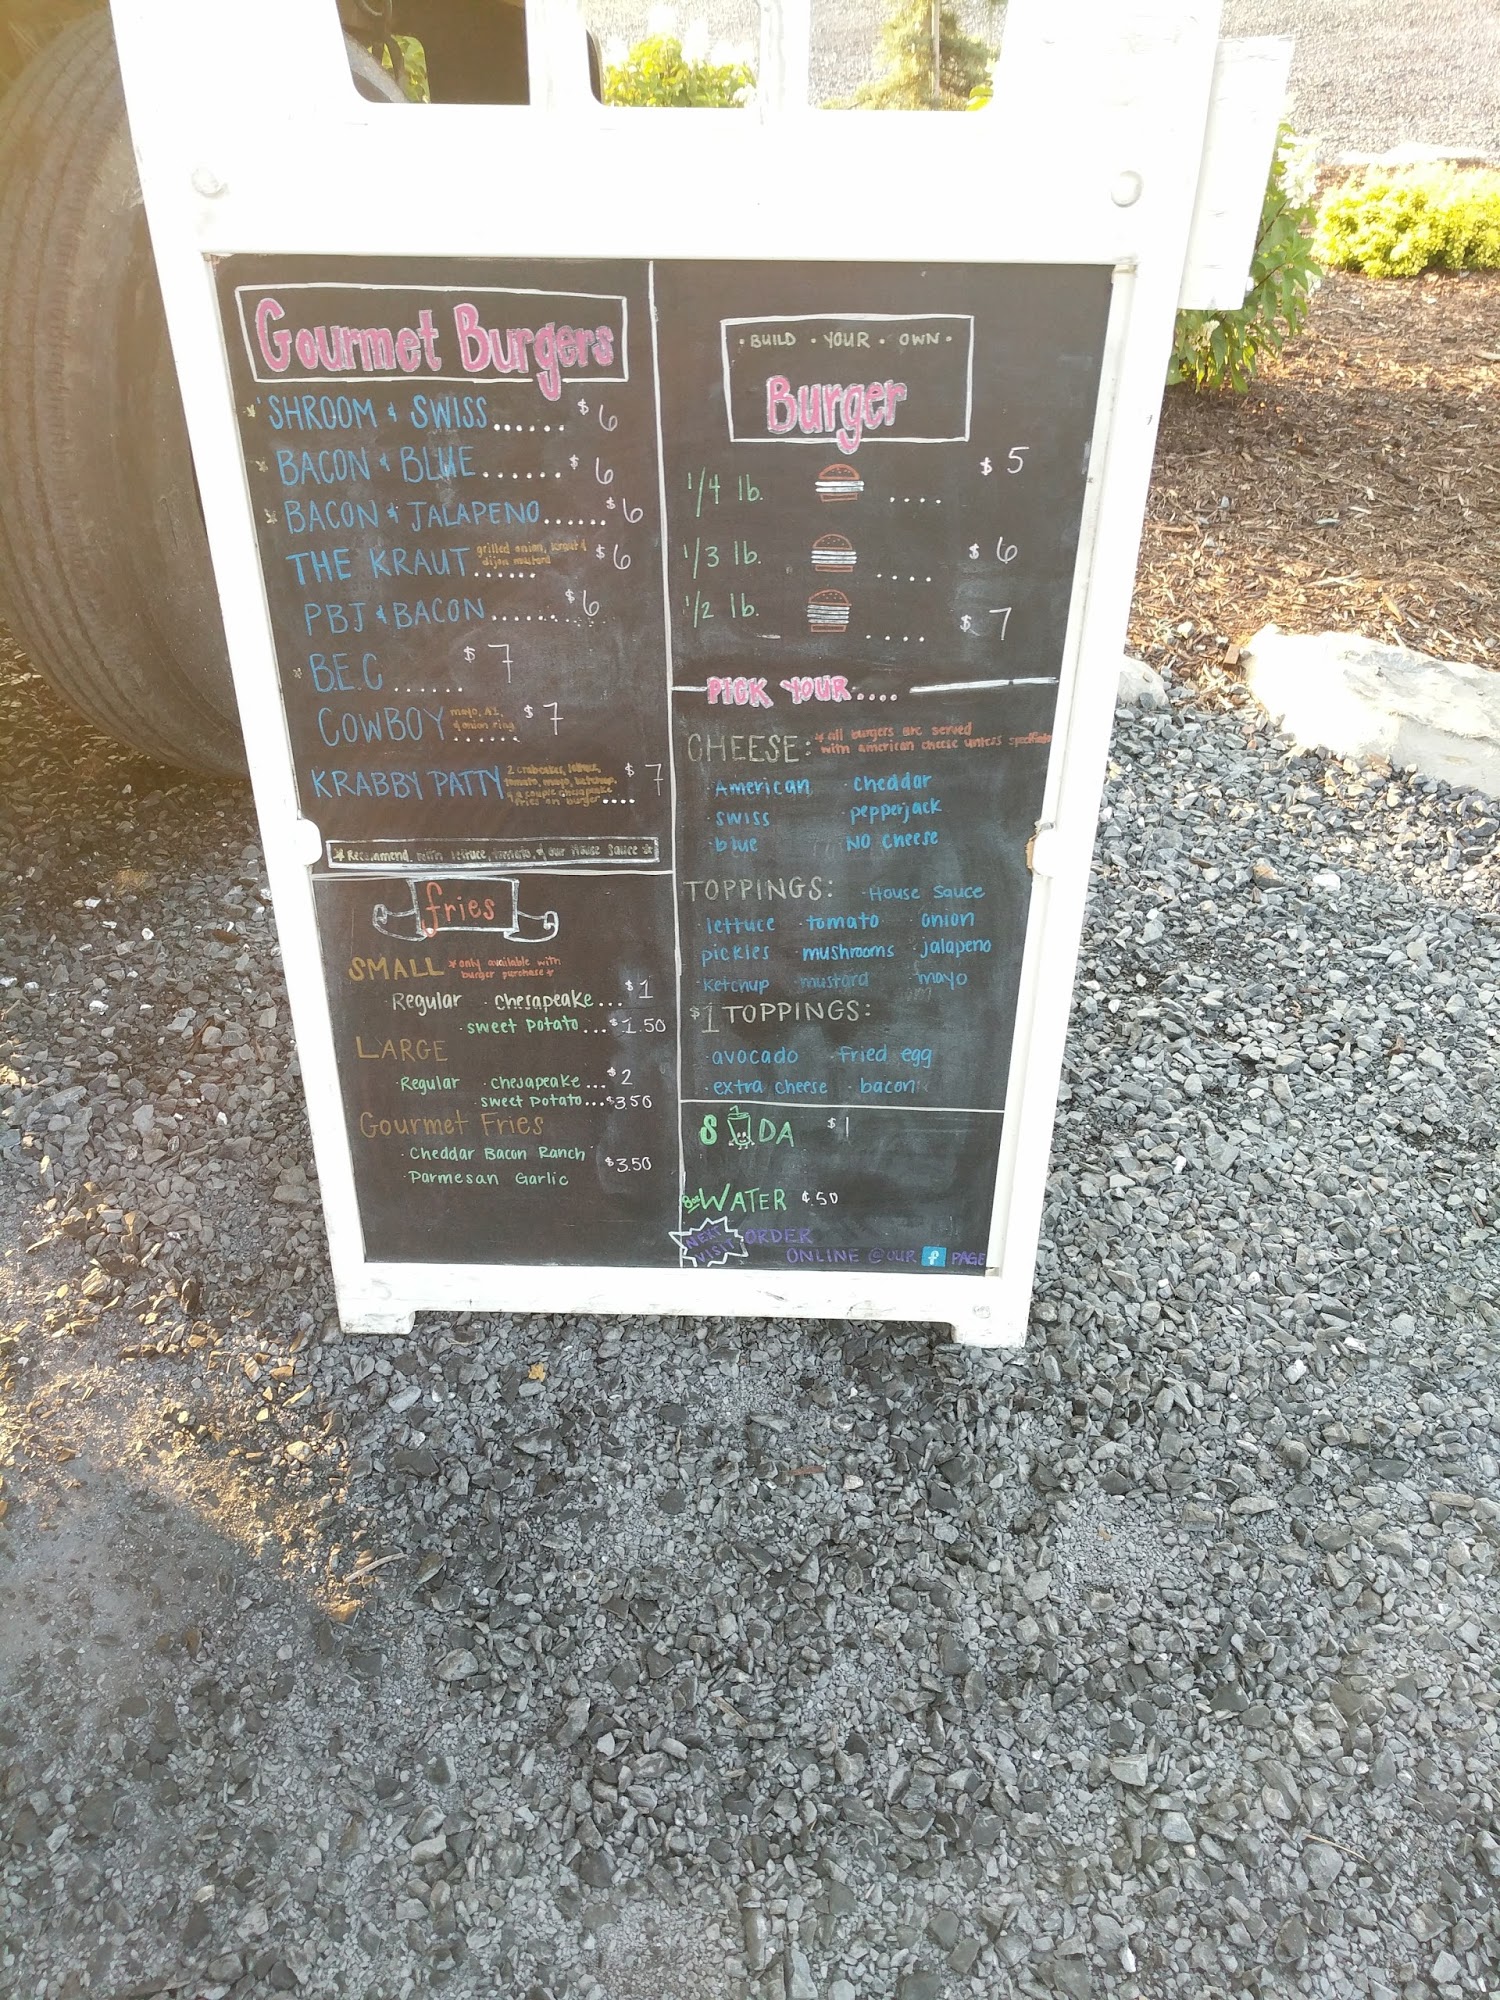 Gourmet Burgers
'SHROOM & SWISS...... $6
BACON & BLUE....... $6
BACON & JALAPENO...... $6
THE KRAUT grilled onion, kraut &
dijon mustard ...... $6
PBJ & BACON......... $6
B.E.C ...... $7
COWBOY mayo, A1,
& onion ring ...... $7
KRABBY PATTY 2 crabcakes, lettuce,
tomato, mayo, ketchup,
& a couple chesapeake
fries on burger .... $7
* Recommend with lettuce, tomato, & our House Sauce *
fries
SMALL *only available with
burger purchase*
· Regular · chesapeake... $1
· sweet potato... $1.50
LARGE
· Regular · chesapeake... $2
sweet potato... $3.50
Gourmet Fries
· Cheddar Bacon Ranch
$3.50
· Parmesan Garlic
· BUILD · YOUR · OWN ·
Burger
1/4 lb. .... $5
1/3 lb. .... $6
1/2 lb. .... $7
PICK YOUR....
CHEESE: * all burgers are served
with american cheese unless specified
· American · cheddar
· swiss · pepperjack
· blue NO cheese
TOPPINGS: · House sauce
· lettuce · tomato · onion
pickles · mushrooms · jalapeno
· ketchup · mustard · mayo
$1 TOPPINGS:
· avocado · Fried egg
· extra cheese · bacon
SODA $1
WATER $.50
NEXT
VISIT
ORDER
ONLINE @ OUR f PAGE